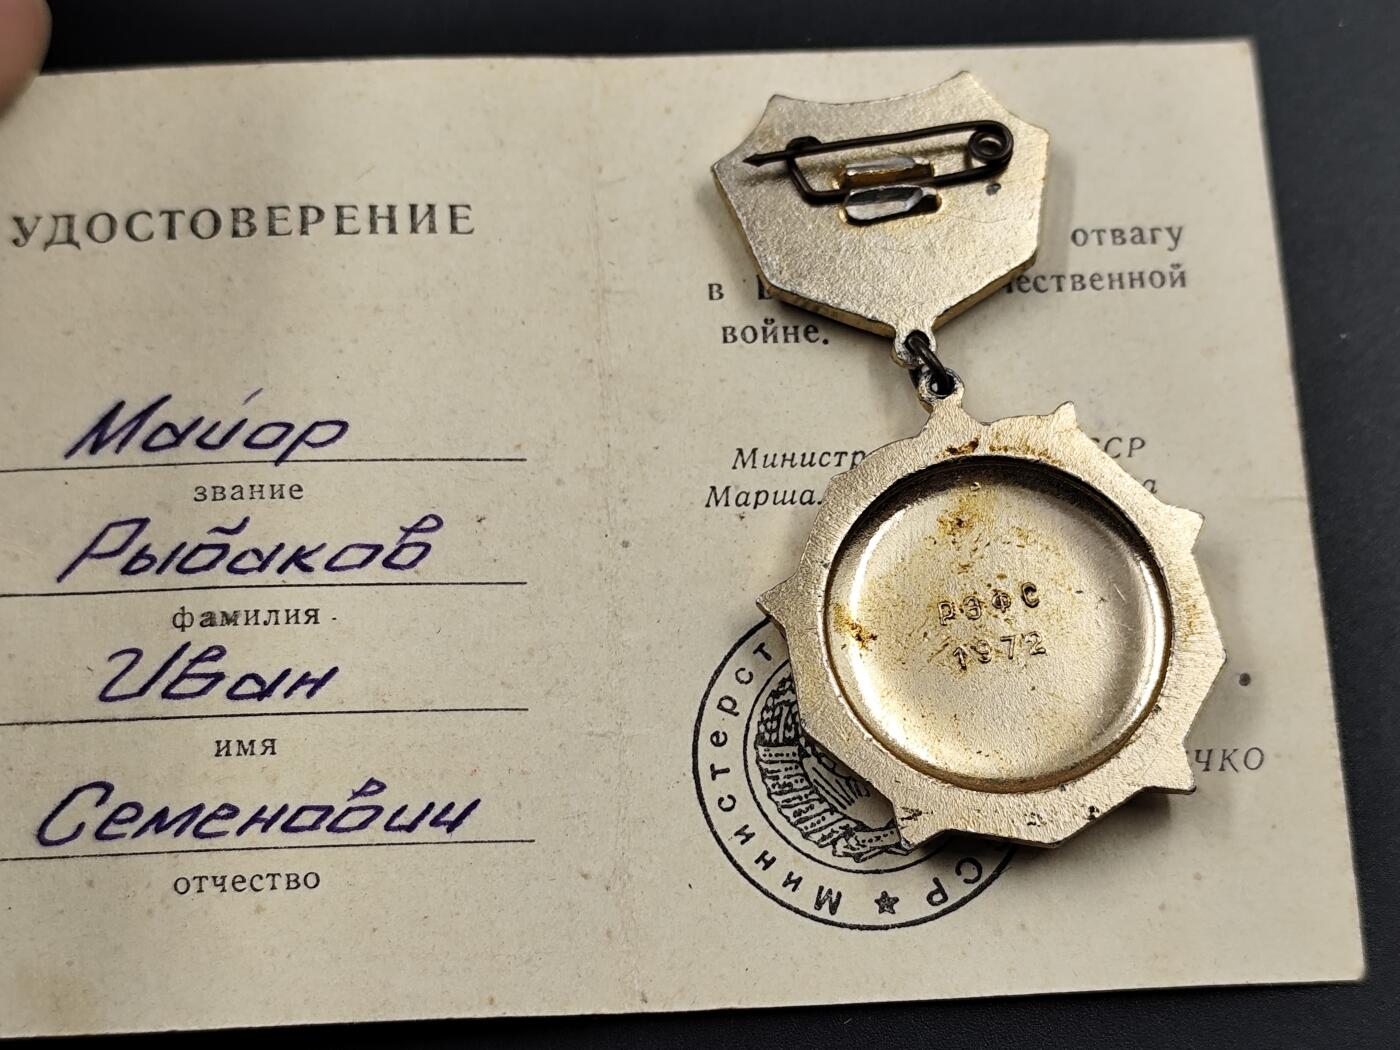 УДОСТОВЕРЕНИЕ
Майор
звание
Рыбаков
фамилия
Иван
имя
Семенович
отчество
отвагу
в чественной
войне.
Министр ССР
Маршал а
ЧКО
РЭФС
1972
Министерст СР ★